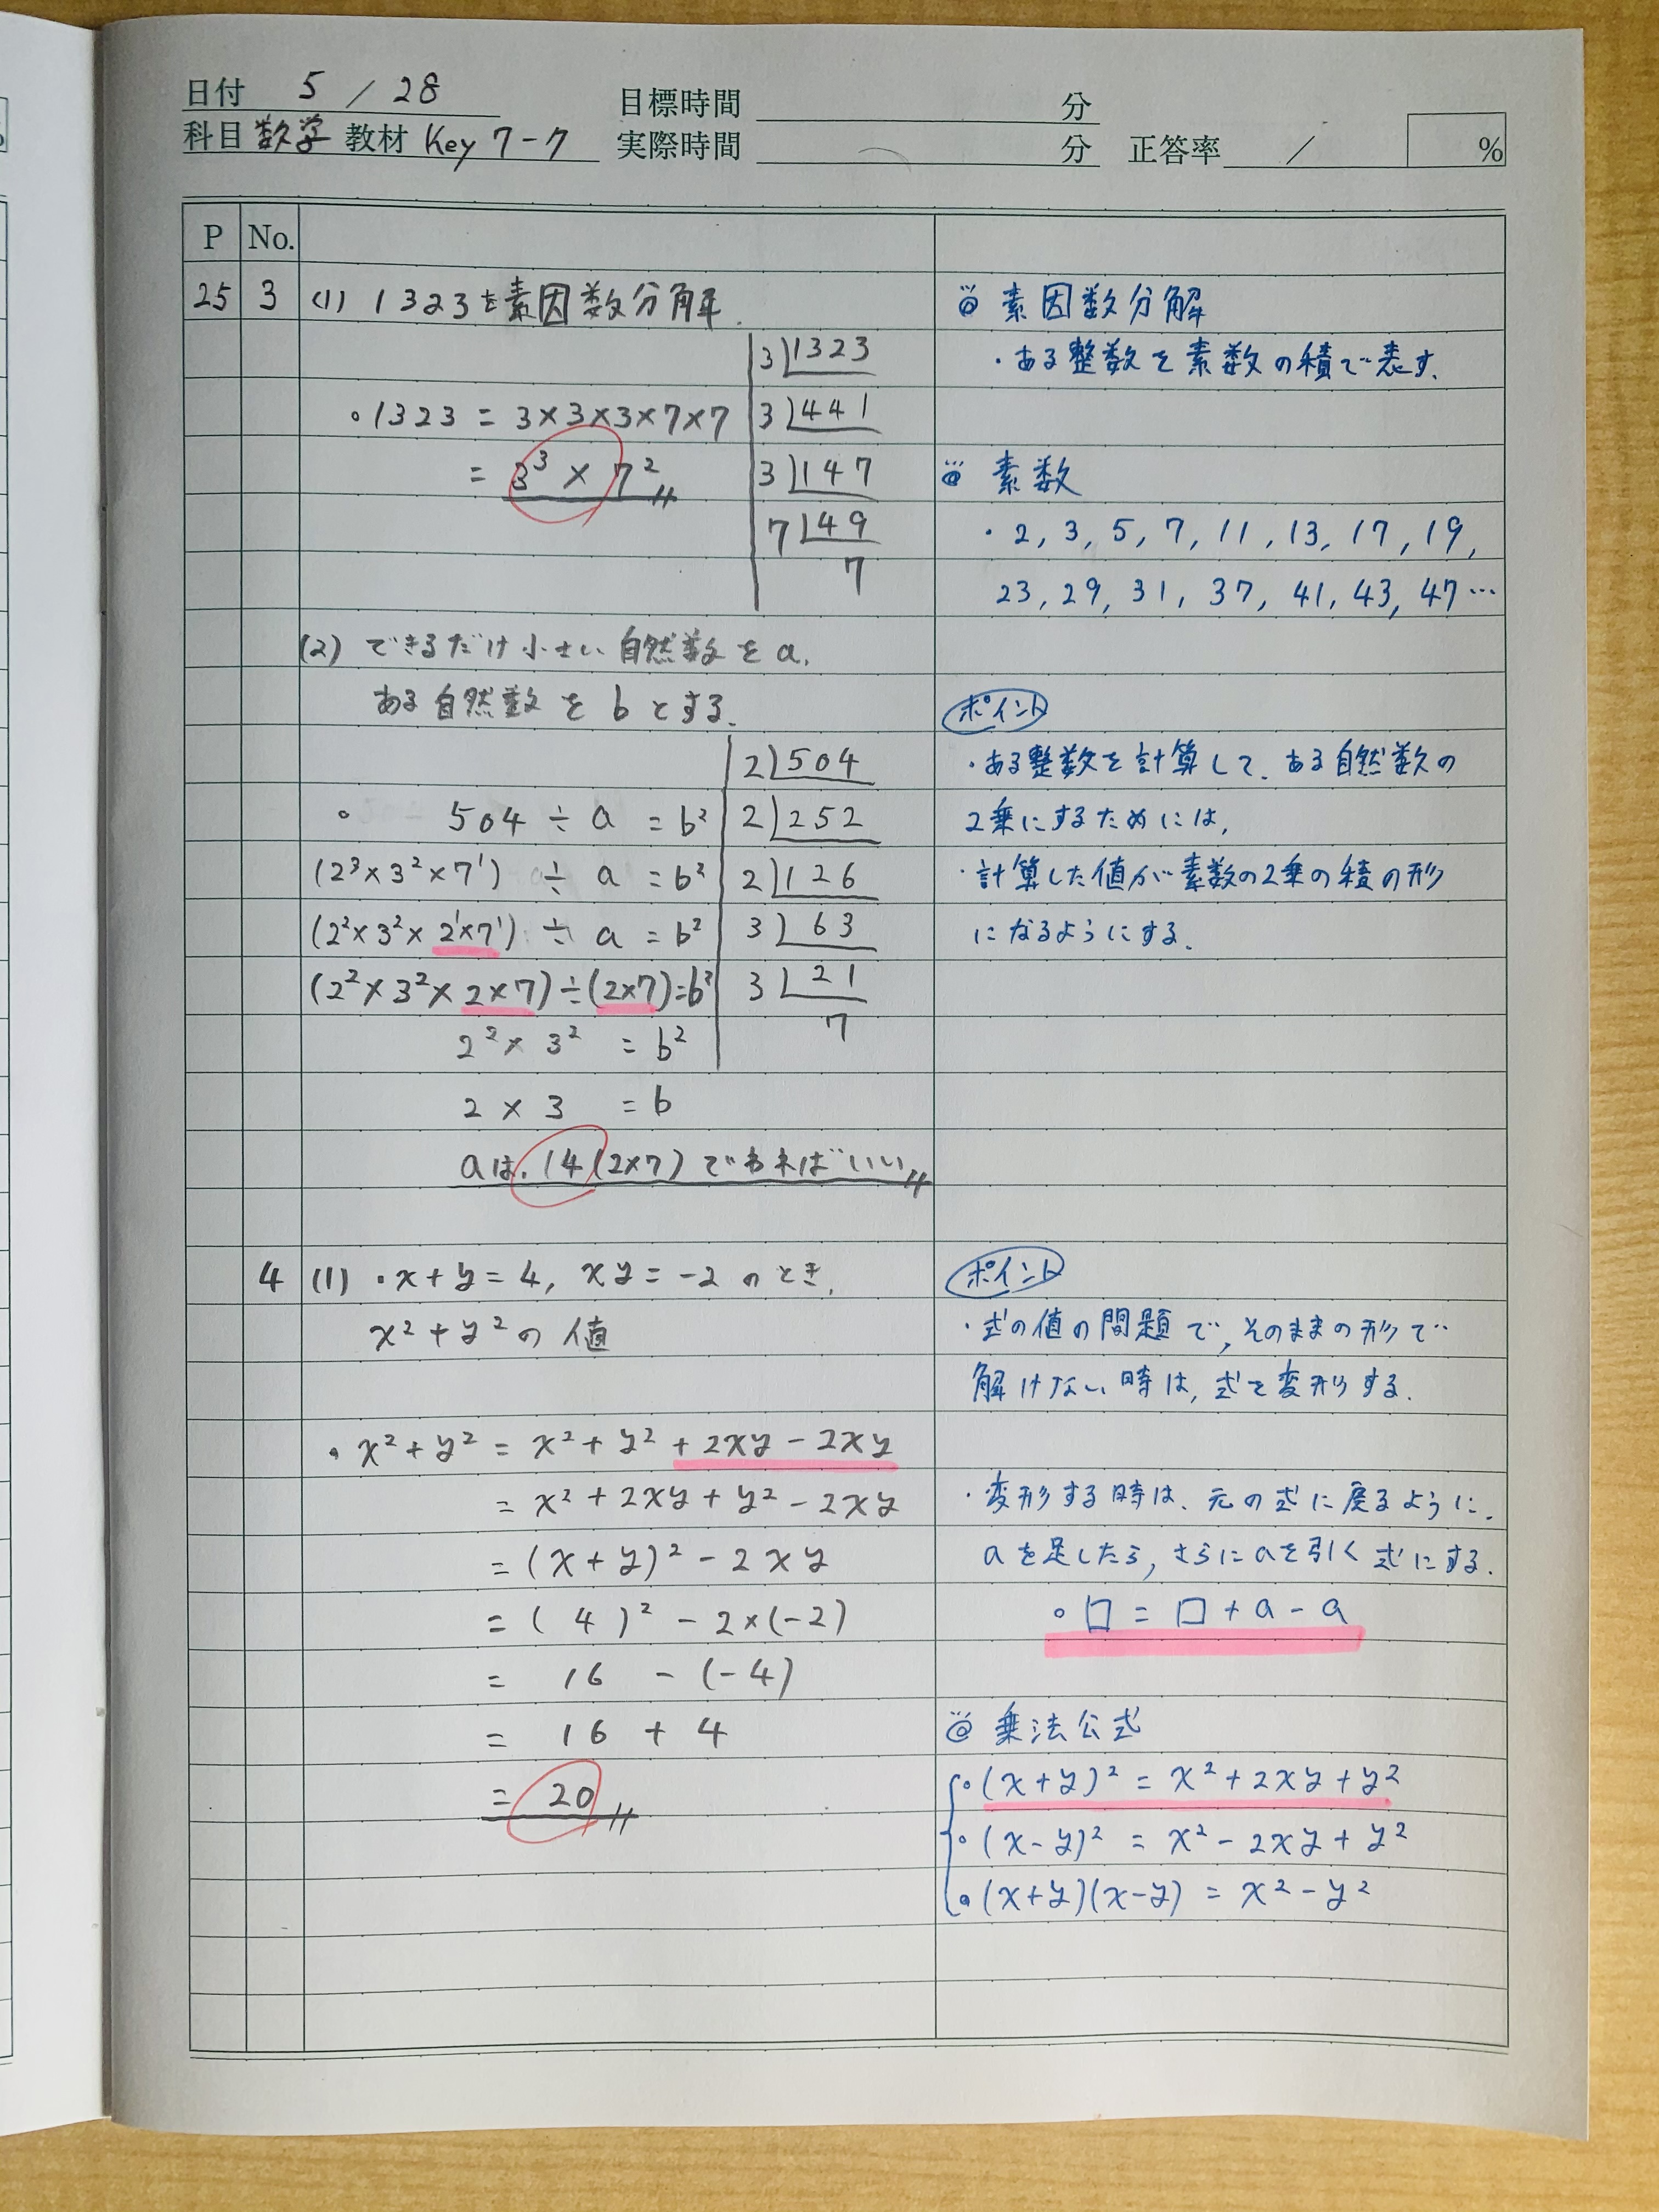 日付 5 / 28
目標時間 分
科目 数学 教材 Key 7-7
実際時間 分 正答率 / %
P No.
25 3 (1) 1323を素因数分解.
3 1323
・1323 = 3×3×3×7×7
3 441
= 3³ × 7²
3 147
7 49
7
(2) できるだけ小さい自然数をa.
ある自然数をbとする.
2 504
・ 504 ÷ a = b²
2 252
(2³×3²×7¹) ÷ a = b²
2 126
(2²×3²×2¹×7¹) ÷ a = b²
3 63
(2²×3²×2×7)÷(2×7)=b²
3 21
2²×3² = b²
7
2×3 = b
aは. 14(2×7)であればいい
4 (1) ・x+y=4, xy=-2 のとき.
x²+y²の値
・x²+y² = x²+y²+2xy-2xy
= x²+2xy+y²-2xy
= (x+y)²-2xy
= (4)²-2×(-2)
= 16 - (-4)
= 16 + 4
= 20
◎ 素因数分解
・ある整数を素数の積で表す.
◎ 素数
・2, 3, 5, 7, 11, 13, 17, 19,
23, 29, 31, 37, 41, 43, 47…
ポイント
・ある整数を計算して、ある自然数の
2乗にするためには,
・計算した値が素数の2乗の積の形
になるようにする.
ポイント
・式の値の問題で, そのままの形で
解けない時は, 式を変形する.
・変形する時は、元の式に戻るように.
aを足したら, さらにaを引く式にする.
・□ = □ + a - a
◎ 乗法公式
・(x+y)² = x²+2xy+y²
・(x-y)² = x²-2xy+y²
・(x+y)(x-y) = x²-y²